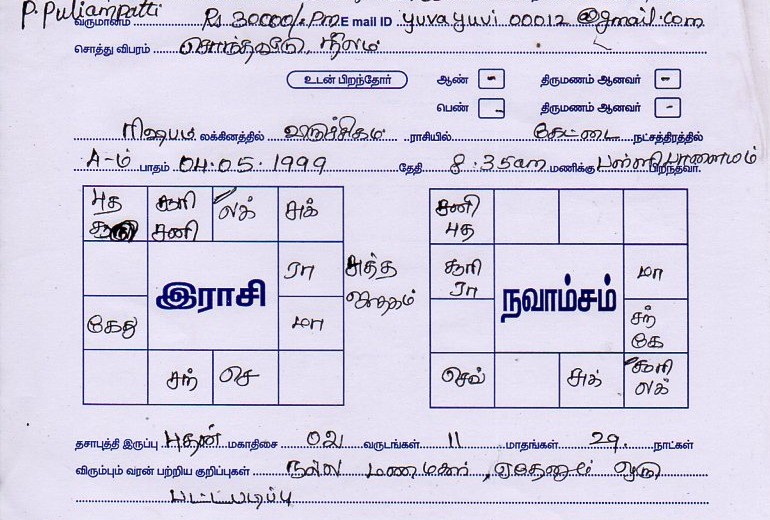 P. Puliampatti
வருமானம் Rs. 30000/- Pm E mail ID yuvayuvi00012@gmail.com
சொத்து விபரம் சொந்தவீடு, நிலம்
உடன் பிறந்தோர் ஆண் - திருமணம் ஆனவர் -
பெண் - திருமணம் ஆனவர் -
ரிஷபம் லக்கினத்தில் விருச்சிகம் ராசியில் கேட்டை நட்சத்திரத்தில்
4-ம் பாதம் 04.05.1999 தேதி 8.35am மணிக்கு பள்ளிபாளையம் பிறந்தவர்.
புத சூரி லக் சுக் சனி புத
குரு சனி
ரா சுத்த சூரி மா
இராசி ஜாதகம் ரா நவாம்சம்
கேது மா சந்
கே
சந் செ செவ் சுக் குரு
லக்
தசாபுத்தி இருப்பு புதன் மகாதிசை 02 வருடங்கள் 11 மாதங்கள் 29 நாட்கள்
விரும்பும் வரன் பற்றிய குறிப்புகள் நல்ல மணமகன், ஏதேனும் ஒரு
பட்டப்படிப்பு